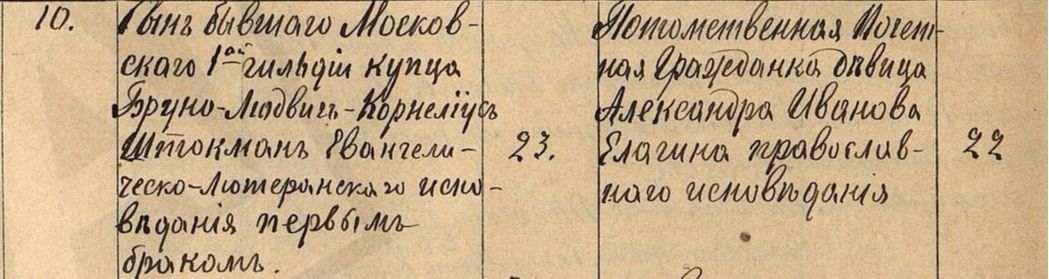 10.
Сынъ бывшаго Москов-
скаго 1ой гильдіи купца
Бруно-Людвигъ-Корнеліусъ
Штокманъ Евангели-
ческо-Лютеранскаго испо-
вѣданія первымъ
бракомъ.
23.
Потомственная Почет-
ная Гражданка дѣвица
Александра Иванова
Елагина православ-
наго исповѣданія
22